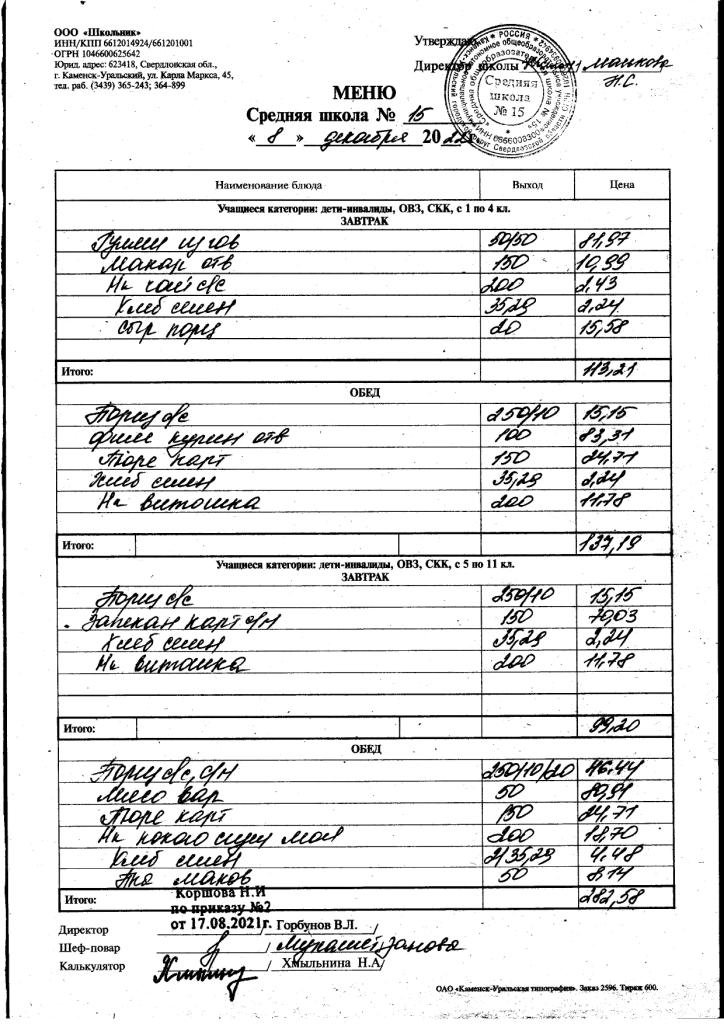 ООО «Школьник»
ИНН/КПП 6612014924/661201001
ОГРН 1046600625642
Юрид. адрес: 623418, Свердловская обл.,
г. Каменск-Уральский, ул. Карла Маркса, 45,
тел. раб. (3439) 365-243; 364-899
Утверждаю
Директор школы Манкова
Н.С.
Средняя
школа
№ 15
МЕНЮ
Средняя школа № 15
« 8 » декабря 2022г.
Наименование блюда Выход Цена
Учащиеся категории: дети-инвалиды, ОВЗ, СКК, с 1 по 4 кл.
ЗАВТРАК
Гуляш из гов 50/50 81,97
Макар отв 150 10,99
Нк чай с/с 200 2,43
Хлеб смен 35,29 2,24
Сыр порц 20 15,58
Итого: 113,21
ОБЕД
Борщ с/с 250/10 15,15
Филе курин отв 100 83,31
Пюре карт 150 24,71
Хлеб смен 35,29 2,24
Нк витошка 200 11,78
Итого: 137,19
Учащиеся категории: дети-инвалиды, ОВЗ, СКК, с 5 по 11 кл.
ЗАВТРАК
Борщ с/с 250/10 15,15
Запекан карт с/м 150 70,03
Хлеб смен 35,29 2,24
Нк витошка 200 11,78
Итого: 99,20
ОБЕД
Борщ с/с, с/м 250/10/20 46,44
Мясо вар 50
Пюре карт 150 24,71
Нк какао сгущ мол 200 18,70
Хлеб смен 2/35,29 4,48
маков 50 8,14
Итого: 282,58
Коршова Н.И
по приказу №2
от 17.08.2021г.
Директор / Горбунов В.Л. /
Шеф-повар / /
Калькулятор / Хмыльнина Н.А/
ОАО «Каменск-Уральская типография». Заказ 2596. Тираж 600.